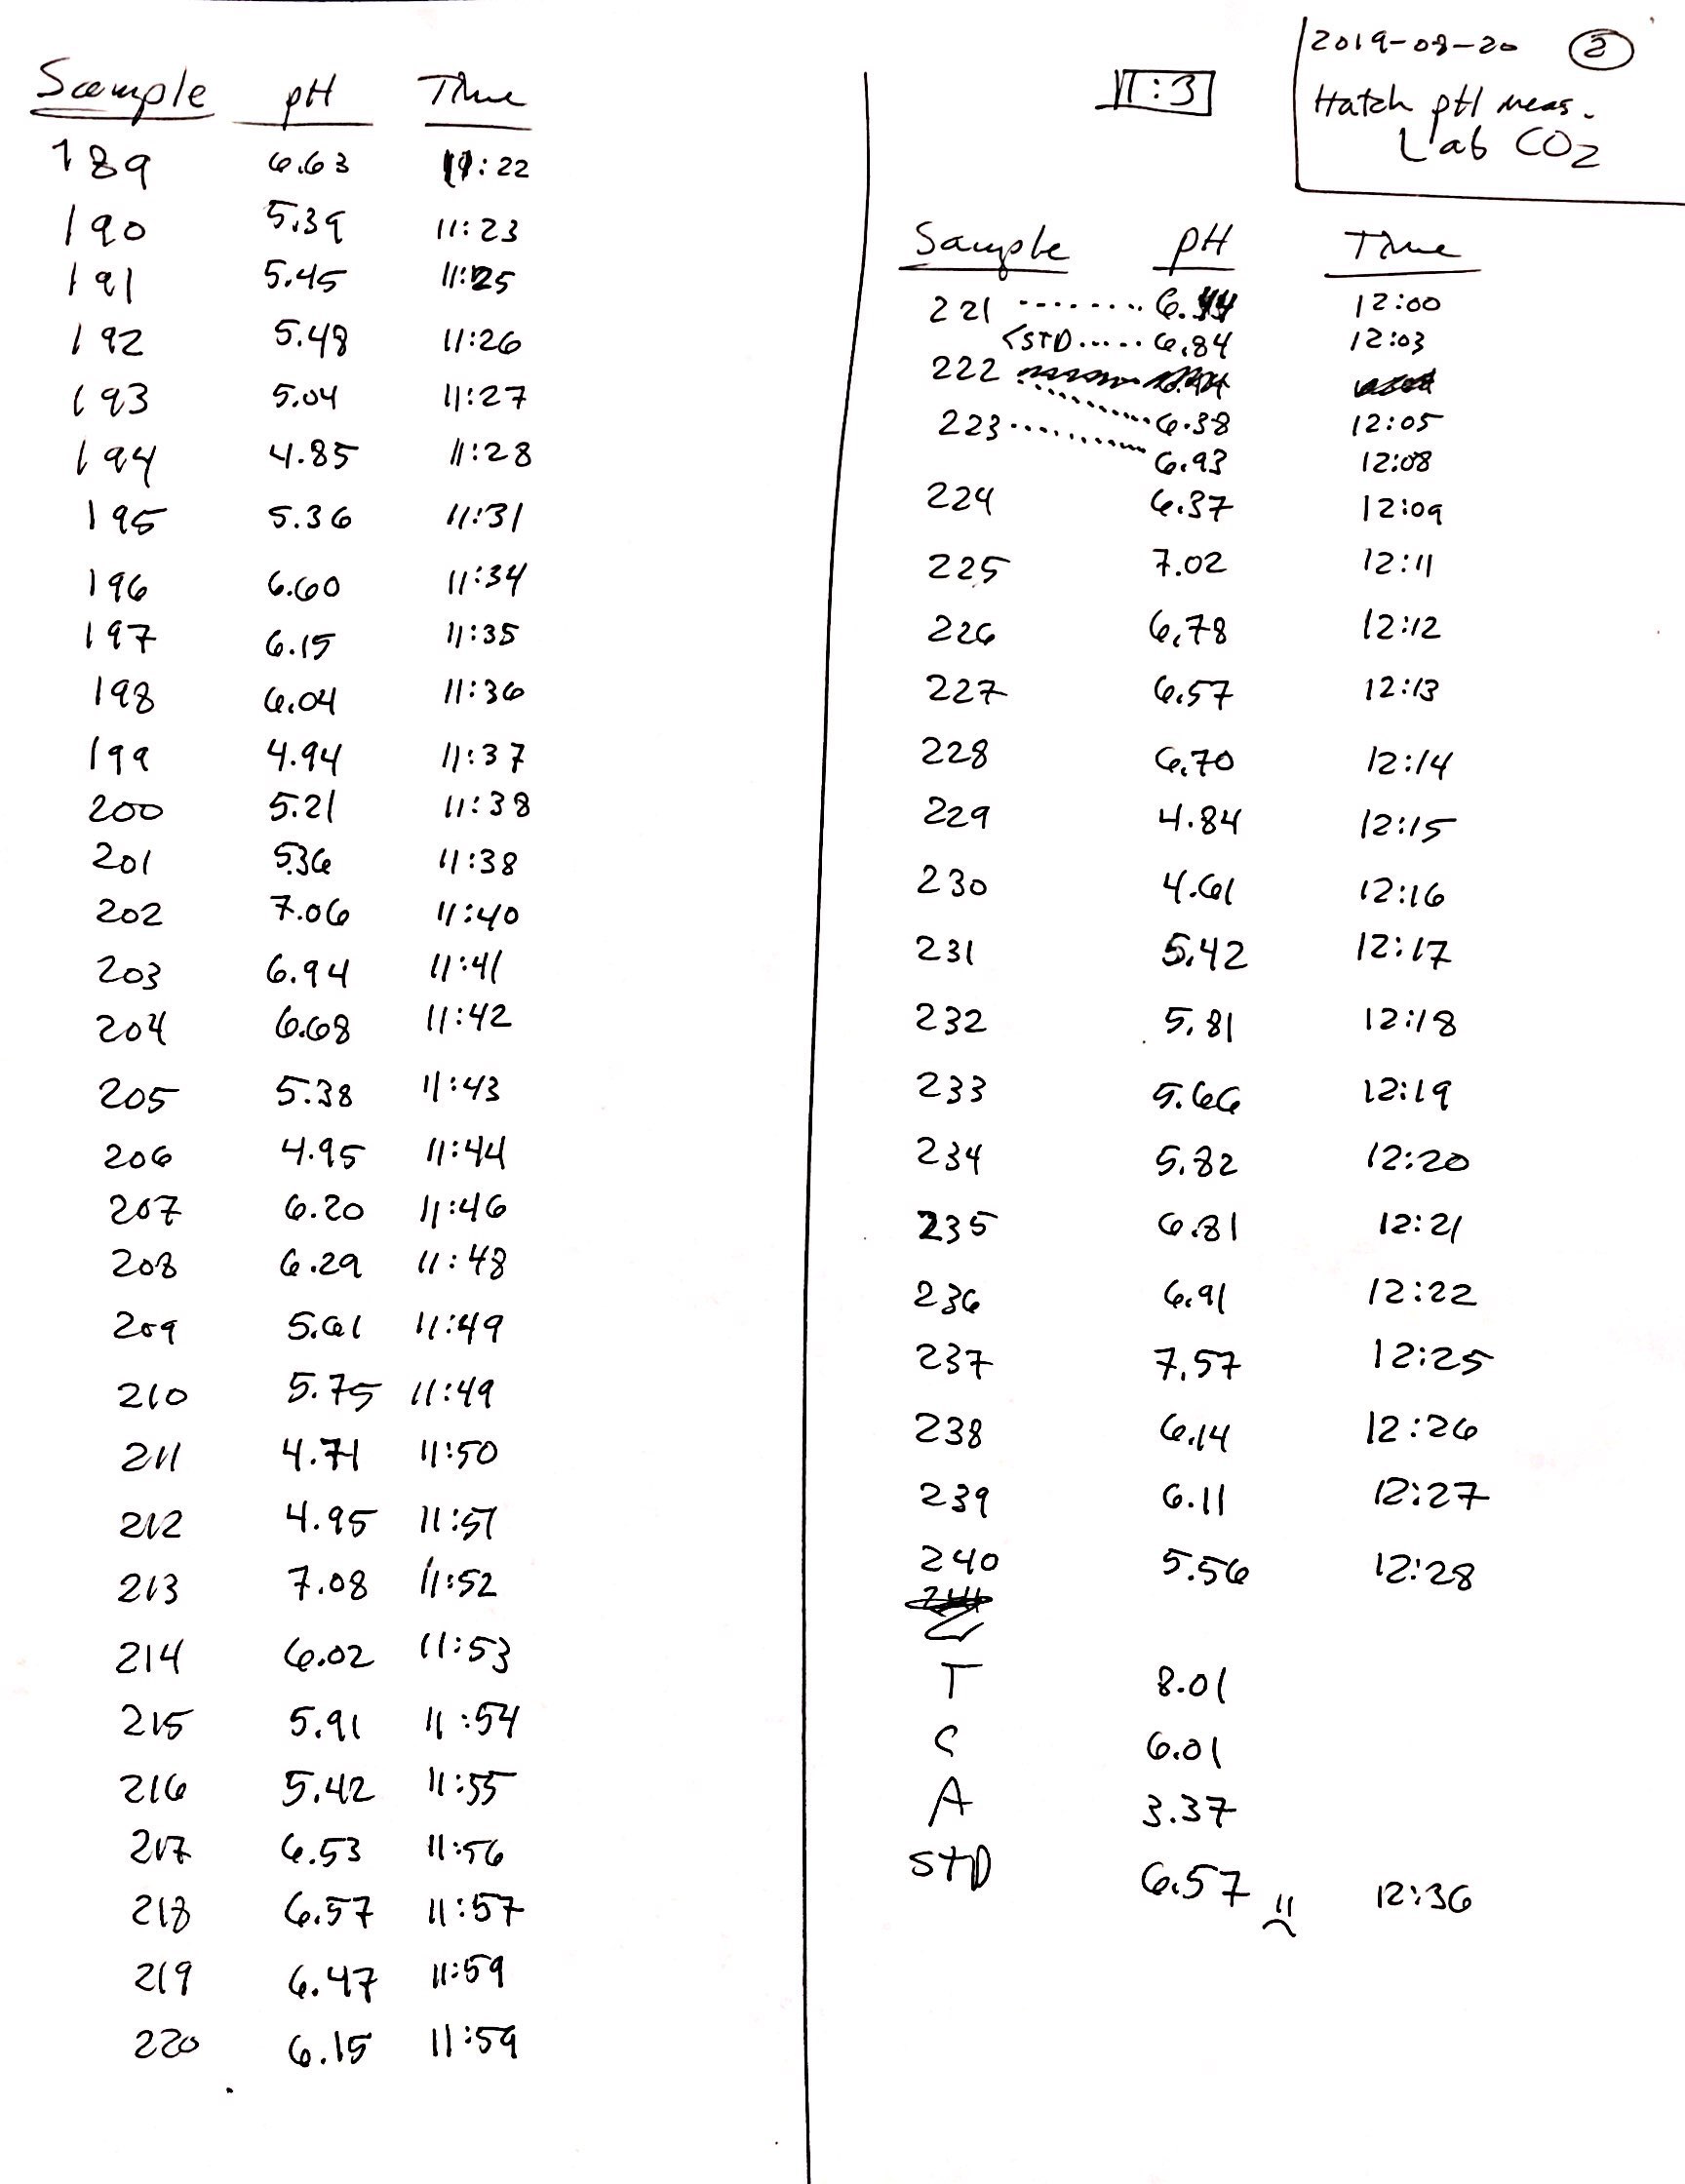 Sample pH Time
189 6.63 11:22
190 5.39 11:23
191 5.45 11:25
192 5.48 11:26
193 5.04 11:27
194 4.85 11:28
195 5.36 11:31
196 6.60 11:34
197 6.15 11:35
198 6.04 11:36
199 4.94 11:37
200 5.21 11:38
201 5.36 11:38
202 7.06 11:40
203 6.94 11:41
204 6.68 11:42
205 5.38 11:43
206 4.95 11:44
207 6.20 11:46
208 6.29 11:48
209 5.61 11:49
210 5.75 11:49
211 4.71 11:50
212 4.95 11:51
213 7.08 11:52
214 6.02 11:53
215 5.91 11:54
216 5.42 11:55
217 6.53 11:56
218 6.57 11:57
219 6.47 11:59
220 6.15 11:59
2019-08-20 2
Hatch pH meas.
Lab CO2
Sample pH Time
221 ........ 6.44 12:00
<STD ..... 6.84 12:03
222 ........ 6.38 12:05
223 ........ 6.93 12:08
224 6.37 12:09
225 7.02 12:11
226 6.78 12:12
227 6.57 12:13
228 6.70 12:14
229 4.84 12:15
230 4.61 12:16
231 5.42 12:17
232 5.81 12:18
233 5.66 12:19
234 5.82 12:20
235 6.81 12:21
236 6.91 12:22
237 7.57 12:25
238 6.14 12:26
239 6.11 12:27
240 5.56 12:28
T 8.01
C 6.01
A 3.37
STD 6.57 12:36